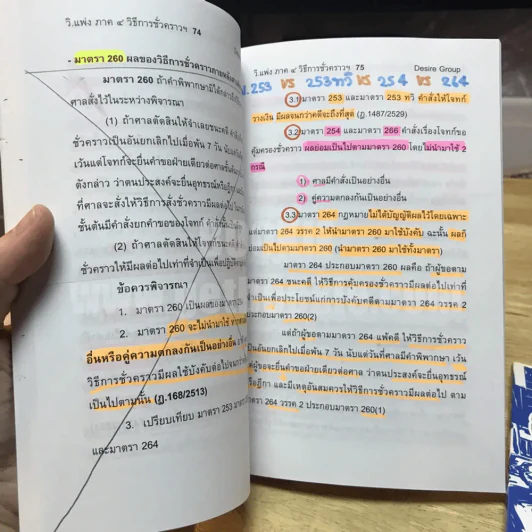 วิ.แพ่ง ภาค ๔ วิธีการชั่วคราวฯ 74
- มาตรา 260 ผลของวิธีการชั่วคราวภายหลัง
มาตรา 260 ถ้าคำพิพากษามิได้กล่าวถึง
ศาลสั่งไว้ในระหว่างพิจารณา
(1) ถ้าศาลตัดสินให้จำเลยชนะคดี
ชั่วคราวเป็นอันยกเลิกไปเมื่อพ้น 7 วัน
เว้นแต่โจทก์จะยื่นคำขอฝ่ายเดียวต่อศาลชั้นต้น
ดังกล่าว ว่าตนประสงค์จะยื่นอุทธรณ์หรือฎีกา
ที่ศาลจะสั่งให้วิธีการชั่วคราวมีผลต่อไป
ชั้นต้นมีคำสั่งยกคำขอของโจทก์
(2) ถ้าศาลตัดสินให้โจทก์ชนะคดี
ชั่วคราวให้มีผลต่อไปเท่าที่จำเป็นเพื่อปฏิบัติตาม
ข้อควรพิจารณา
1. มาตรา 260 เป็นผลของ
2. มาตรา 260 จะไม่นำมาใช้
อื่นหรือคู่ความตกลงกันเป็นอย่างอื่น
วิธีการชั่วคราวมีผลใช้บังคับต่อไป
เป็นไปตามนั้น (ฎ.168/2513)
3. เปรียบเทียบ มาตรา 253
และมาตรา 264
วิ.แพ่ง ภาค ๔ วิธีการชั่วคราวฯ 75 Desire Group
ม.253 vs 253ทวิ vs 254 vs 264
3.1 มาตรา 253 และมาตรา 253 ทวิ คำสั่งให้โจทก์
วางเงิน มีผลจนกว่าคดีจะถึงที่สุด (ฎ.1487/2529)
3.2 มาตรา 254 และมาตรา 266 คำสั่งเรื่องโจทก์ขอ
คุ้มครองชั่วคราว ผลย่อมเป็นไปตามมาตรา 260 โดยไม่นำมาใช้ 2
กรณี
1) ศาลมีคำสั่งเป็นอย่างอื่น
2) คู่ความตกลงกันเป็นอย่างอื่น
3.3 มาตรา 264 กฎหมายไม่ได้บัญญัติผลไว้โดยเฉพาะ
แต่มาตรา 264 วรรค 2 ให้นำมาตรา 260 มาใช้บังคับ ฉะนั้น ผลก็
ย่อมเป็นไปตามมาตรา 260 (นำมาตรา 260 มาใช้ทั้งมาตรา)
มาตรา 264 ประกอบมาตรา 260 ผลคือ ถ้าผู้ขอตาม
มาตรา 264 ชนะคดี ให้วิธีการคุ้มครองชั่วคราวมีผลต่อไปเท่าที่
จำเป็นเพื่อประโยชน์แก่การบังคับคดีตามมาตรา 264 วรรค 2
ประกอบมาตรา 260(2)
แต่ถ้าผู้ขอตามมาตรา 264 แพ้คดี ให้วิธีการชั่วคราว
เป็นอันยกเลิกไปเมื่อพ้น 7 วัน นับแต่วันที่ศาลมีคำพิพากษา เว้น
แต่ผู้ขอจะยื่นคำขอฝ่ายเดียวต่อศาล ว่าตนประสงค์จะยื่นอุทธรณ์
หรือฎีกา และมีเหตุอันสมควรให้วิธีการชั่วคราวมีผลต่อไป ตาม
มาตรา 264 วรรค 2 ประกอบมาตรา 260(1)